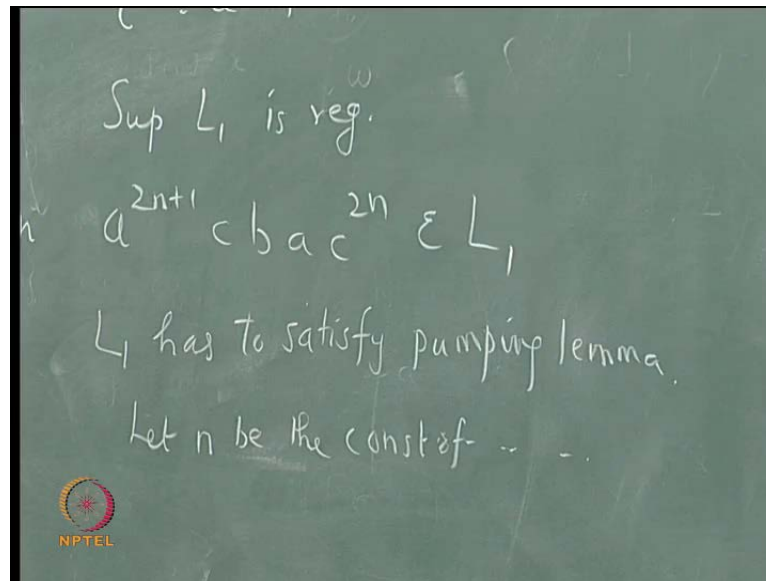 Sup L₁ is reg.
a²ⁿ⁺¹ c b a c²ⁿ ε L₁
L₁ has to satisfy pumping lemma.
Let n be the const of - - .
NPTEL